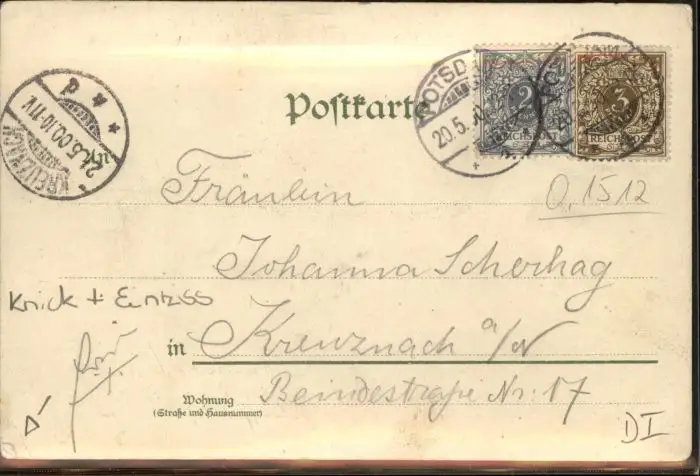 Postkarte
POTSDAM
20.5.00
2
REICHSPOST
3
REICHSPOST
KREUZNACH
21.5.00.10-11V
An
Fräulein
0,1512
Johanna Scherhag
Knick + Einriss
in Kreuznach a/N
Wohnung
(Straße und Hausnummer)
Beindestraße Nr. 17
DI